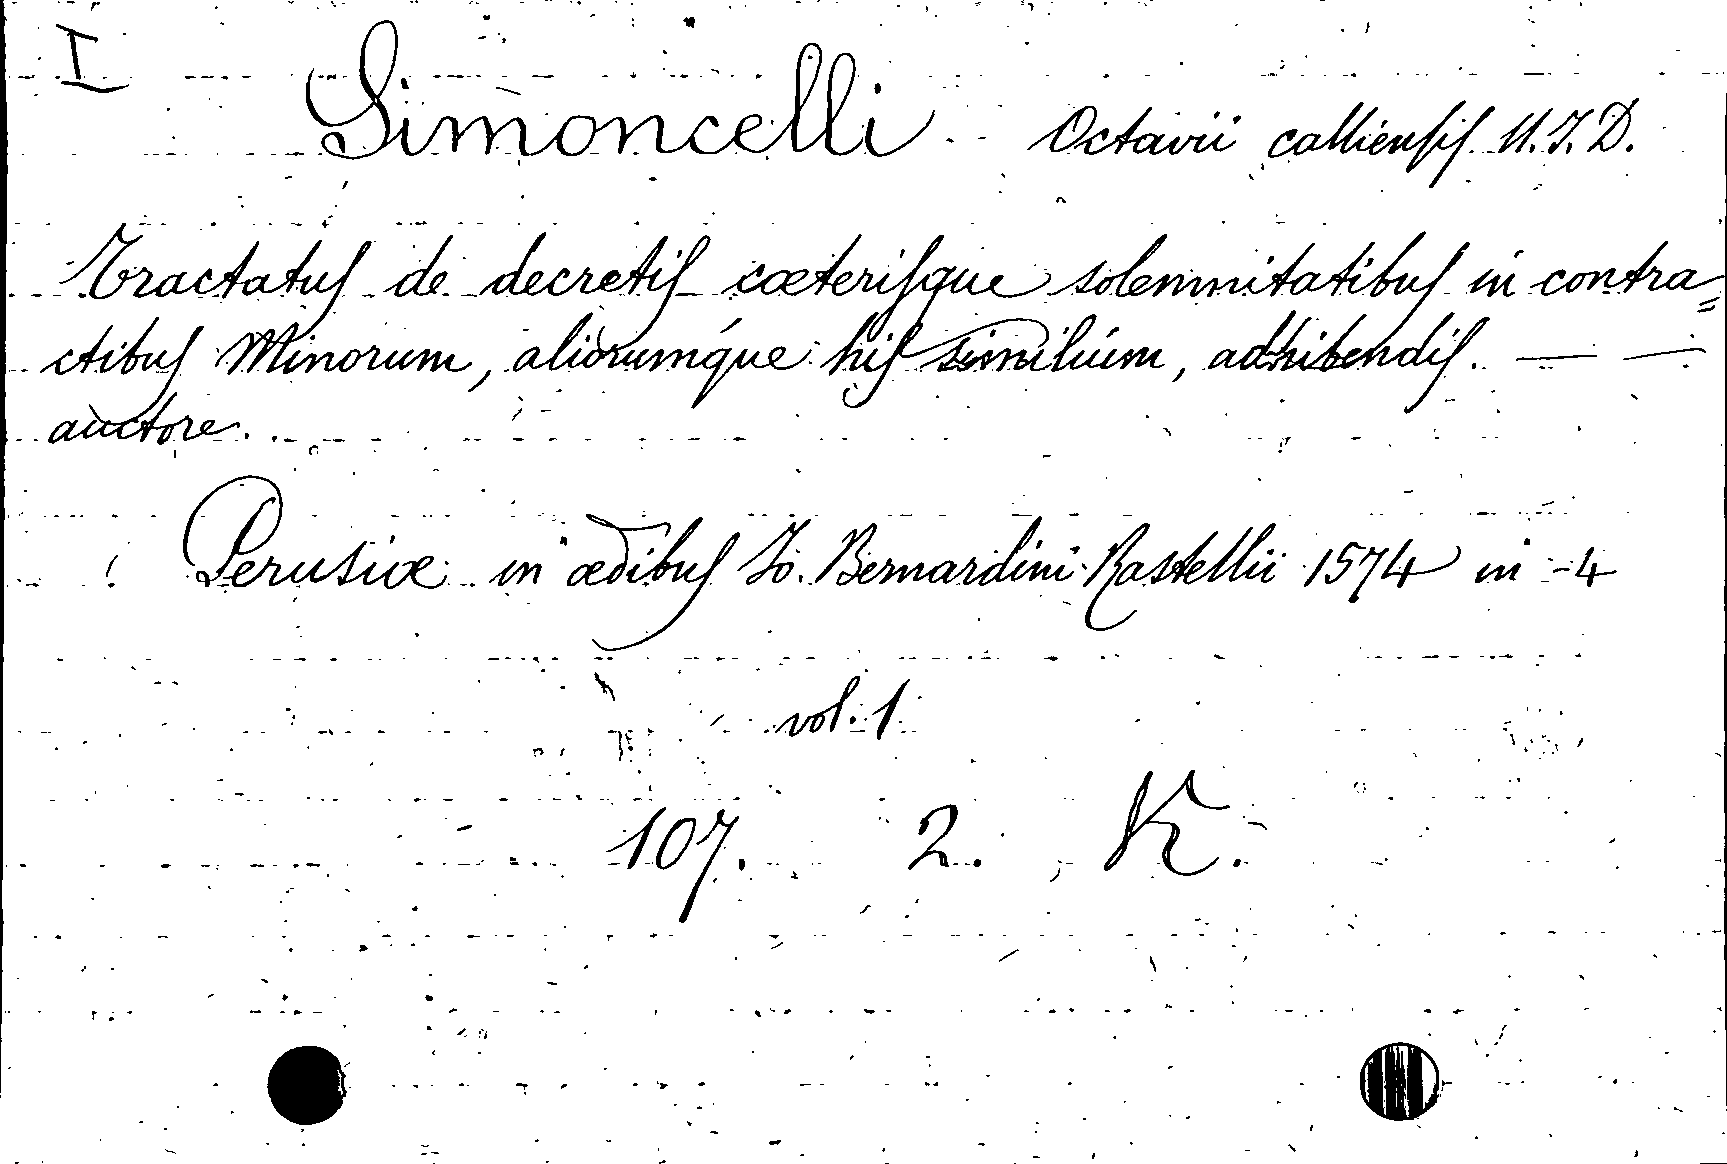 I
Simoncelli Octavii calliensis U.J.D.
Tractatus de decretis cæterisque solemnitatibus in contra=
ctibus Minorum, aliorumque his similium, adhibendis. — —
auctore.
Perusiæ in ædibus Jo. Bernardini Rastellii 1574 in -4
vol. 1
107. 2. K.